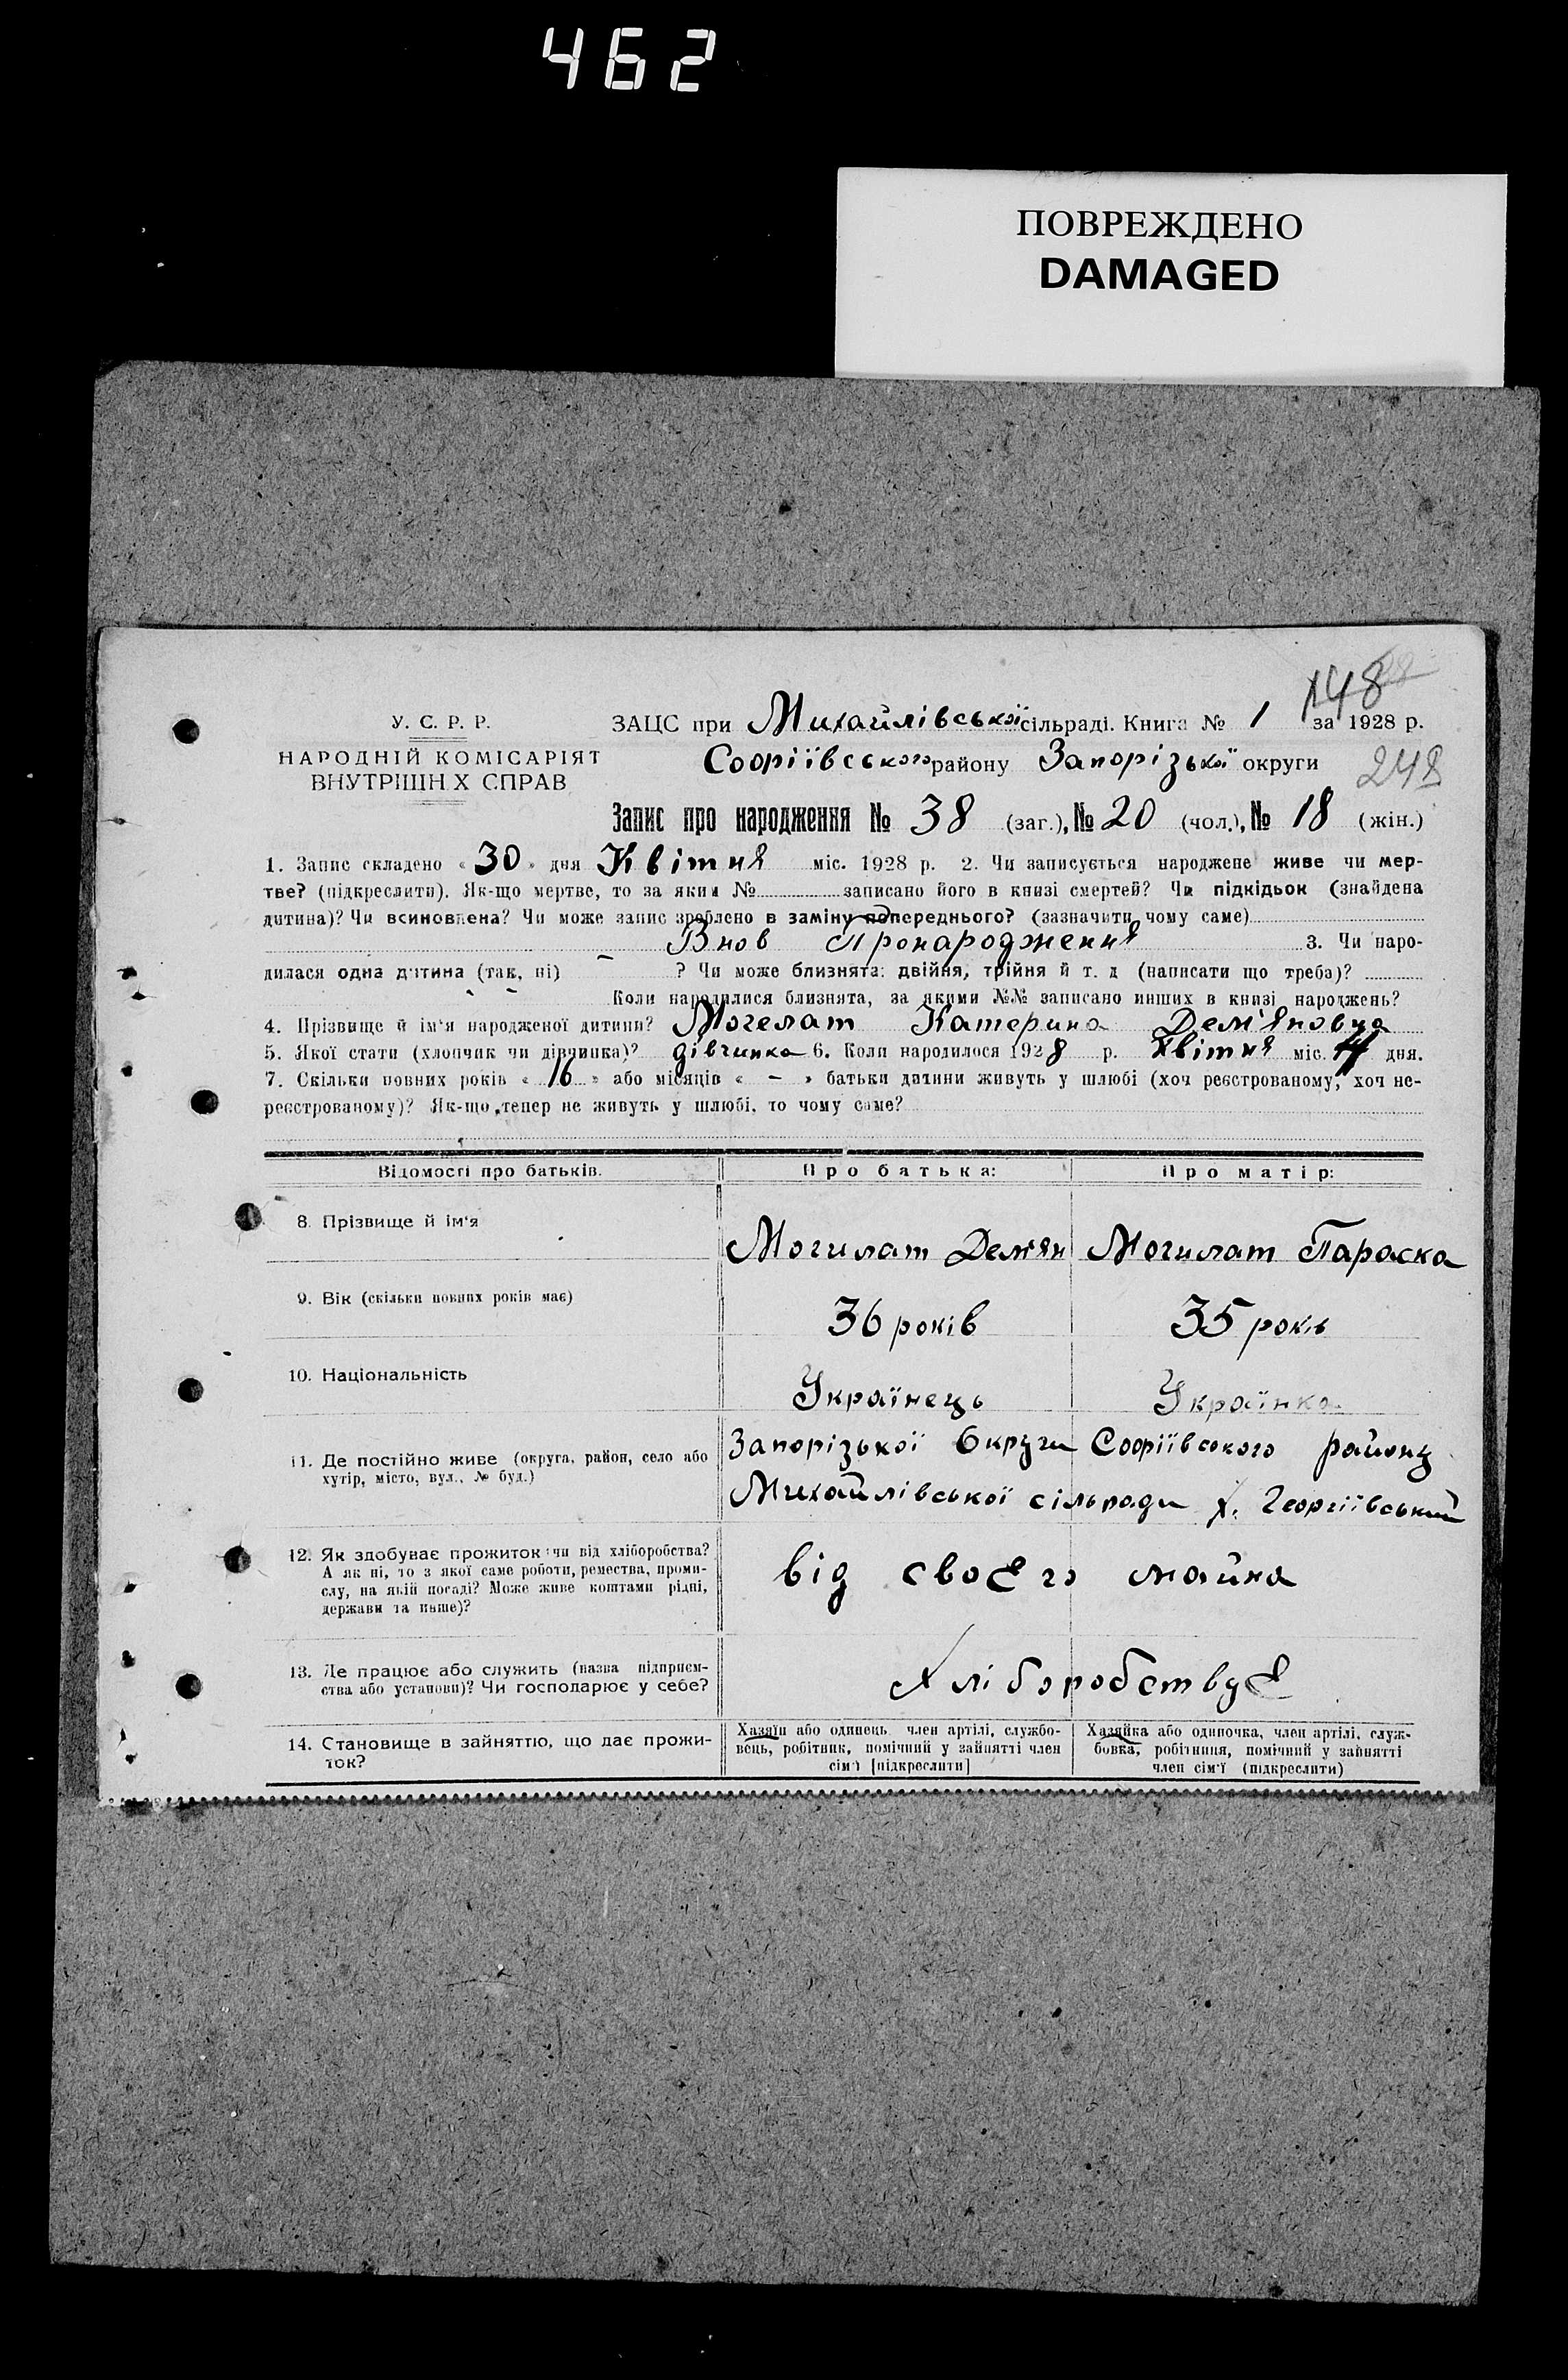 462
ПОВРЕЖДЕНО
DAMAGED
148
У. С. Р. Р.
ЗАЦС при Михайлівської сільраді. Книга № 1 за 1928 р.
НАРОДНІЙ КОМІСАРІЯТ
ВНУТРІШН Х СПРАВ
Софіївського району Запорізької округи
248
Запис про народження № 38 (заг.), № 20 (чол.), № 18 (жін.)
1. Запис складено « 30 » дня Квітня міс. 1928 р. 2. Чи записується народжене живе чи мер-
тве? (підкреслити). Як-що мертве, то за яким № записано його в книзі смертей? Чи підкідьок (знайдена
дитина)? Чи всиновлена? Чи може запис зроблено в заміну попереднього? (зазначити чому саме)
Внов Пронародження 3. Чи наро-
дилася одна дитина (так, ні) – ? Чи може близнята: двійня, трійня й т. д (написати що треба)?
Коли народилися близнята, за якими №№ записано инших в книзі народжень?
4. Прізвище й ім'я народженої дитини? Могелат Катерина Дем'яновна
5. Якої стати (хлопчик чи дівчинка)? дівчинка 6. Коли народилося 1928 р. Квітня міс. дня.
7. Скільки повних років « 16 » або місяців « – » батьки дитини живуть у шлюбі (хоч реєстрованому, хоч не-
реєстрованому)? Як-що тепер не живуть у шлюбі, то чому саме?
Відомості про батьків. Про батька: Про матір:
8. Прізвище й ім'я
Могилат Дем'ян Могилат Параска
9. Вік (скільки повних років має)
36 років 35 років
10. Національність
Українець Українка
11. Де постійно живе (округа, район, село або
хутір, місто, вул., № буд.)
Запорізької Округи Софіївського району
Михайлівської сільради х. Георгіївський
12. Як здобуває прожиток: чи від хліборобства?
А як ні, то з якої саме роботи, ремества, проми-
слу, на якій посаді? Може живе коштами рідні,
держави та инше)?
від своєго майна
13. Де працює або служить (назва підприєм-
ства або установи)? Чи господарює у себе?
Хліборобствує
14. Становище в зайняттю, що дає прожи-
ток?
Хазяїн або одинець член артілі, службо-
вець, робітник, помічний у зайнятті член
сім'ї [підкреслити]
Хазяйка або одиночка, член артілі, служ-
бовка, робітниця, помічний у зайнятті
член сім'ї (підкреслити)